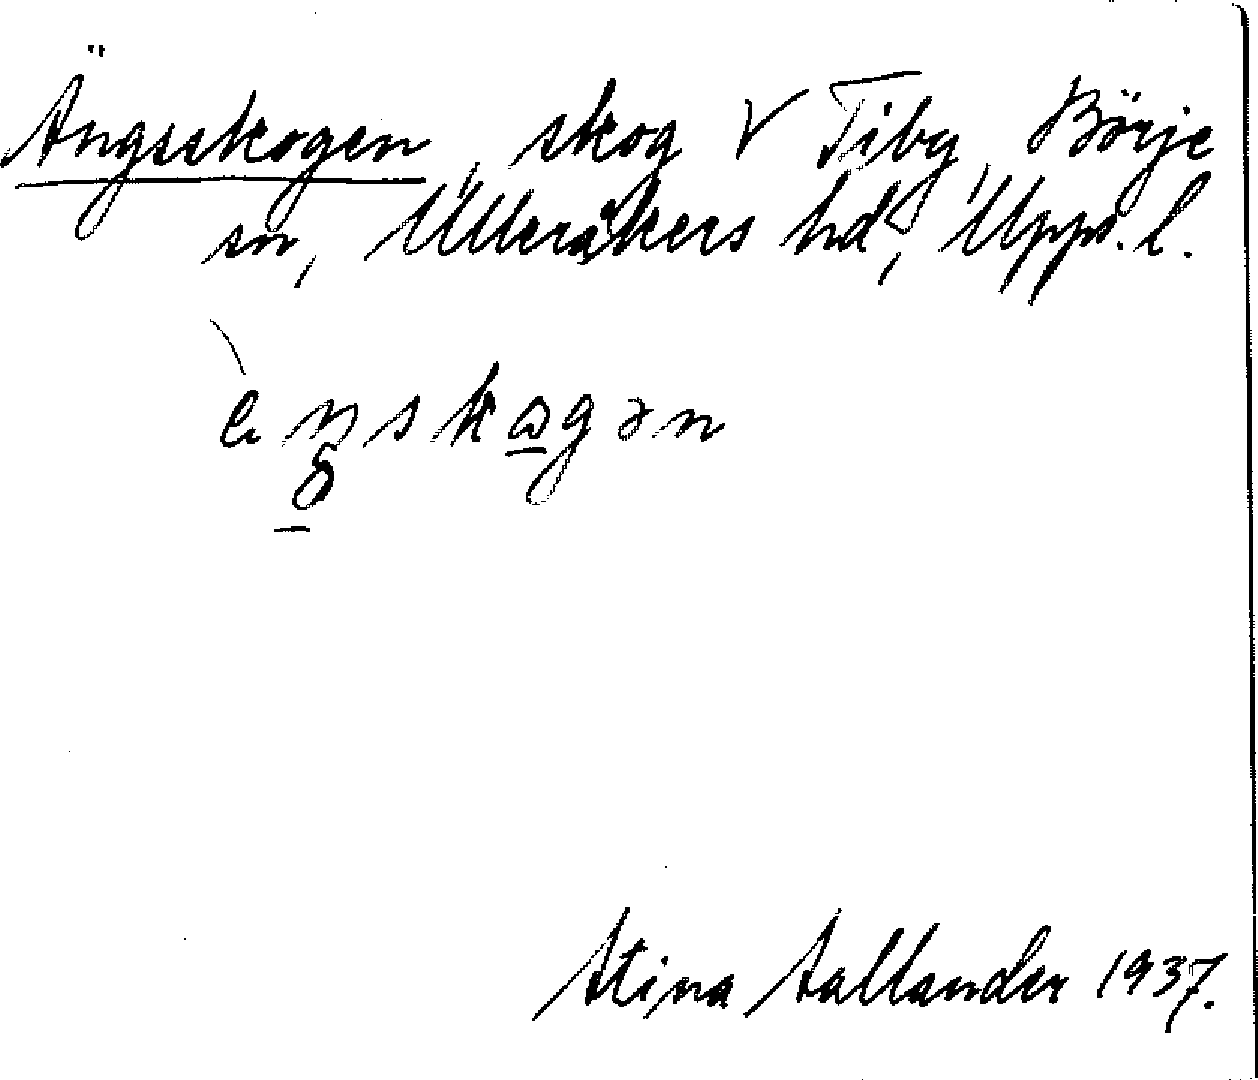 Ängsskogen, skog V Tiby, Börje
sn, Ulleråkers hd, Upps. l.
Stina Sallander 1937.